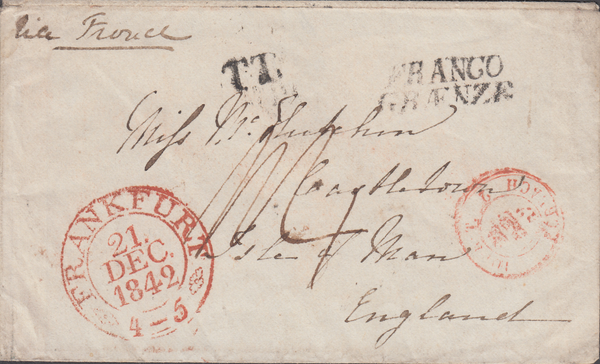 Via France
T.T.
FRANCO
GRÆNZE
Miss
Castletown
Isle of Man
England
FRANKFURT
21.
DEC.
1842
4-5